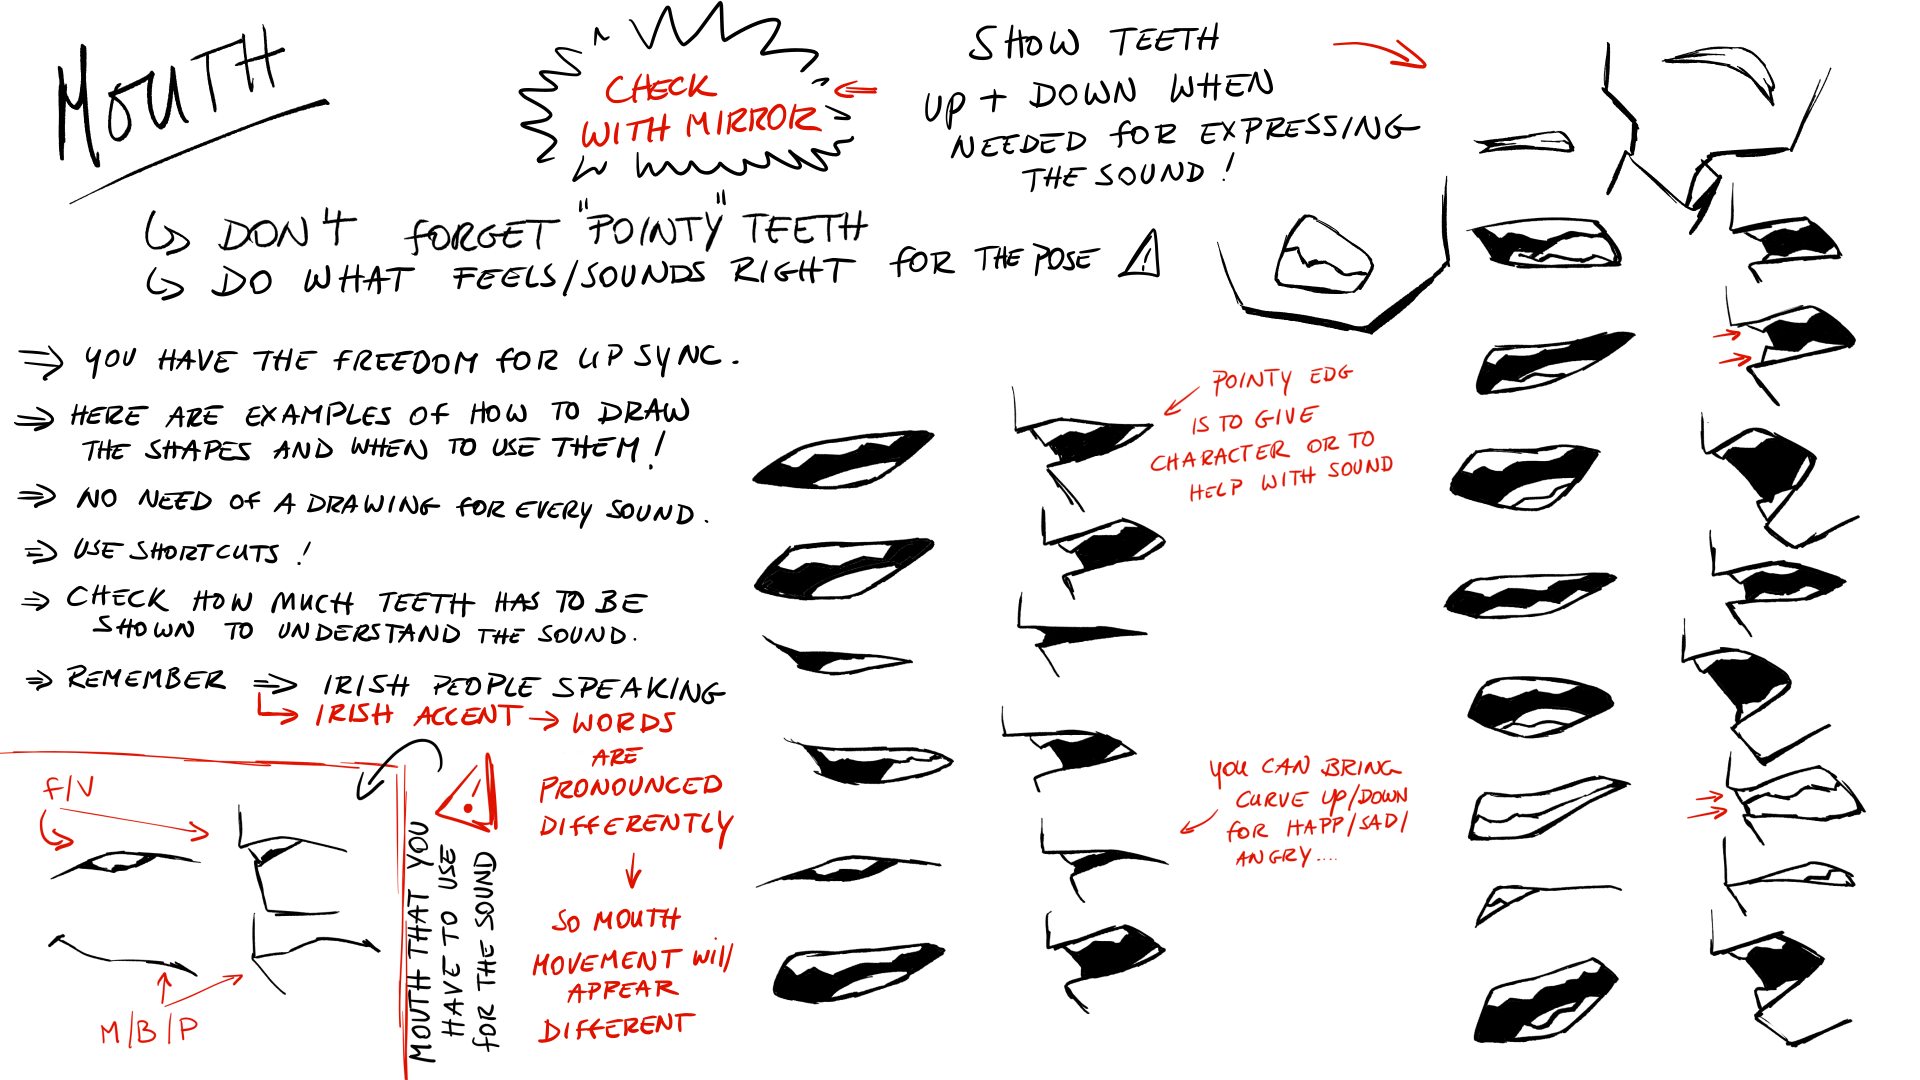 MOUTH
CHECK
WITH MIRROR
SHOW TEETH
UP + DOWN WHEN
NEEDED FOR EXPRESSING
THE SOUND!
DON'T FORGET "POINTY" TEETH
DO WHAT FEELS/SOUNDS RIGHT FOR THE POSE
YOU HAVE THE FREEDOM FOR LIP SYNC.
HERE ARE EXAMPLES OF HOW TO DRAW
THE SHAPES AND WHEN TO USE THEM!
NO NEED OF A DRAWING FOR EVERY SOUND.
USE SHORTCUTS!
CHECK HOW MUCH TEETH HAS TO BE
SHOWN TO UNDERSTAND THE SOUND.
REMEMBER ⇒ IRISH PEOPLE SPEAKING
IRISH ACCENT → WORDS
ARE
PRONOUNCED
DIFFERENTLY
SO MOUTH
MOVEMENT WILL
APPEAR
DIFFERENT
F/V
M/B/P
MOUTH THAT YOU
HAVE TO USE
FOR THE SOUND
POINTY EDG
IS TO GIVE
CHARACTER OR TO
HELP WITH SOUND
YOU CAN BRING
CURVE UP/DOWN
FOR HAPP/SAD/
ANGRY....